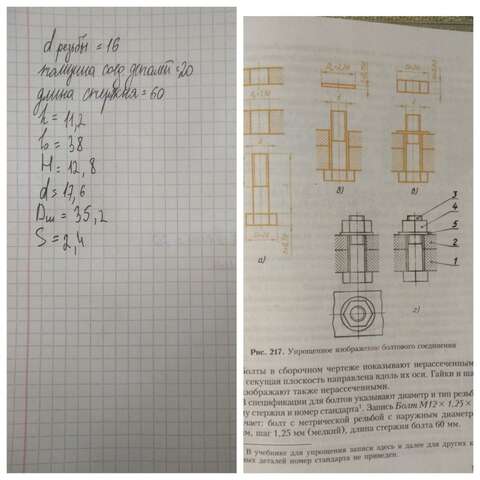 d резьбы = 16
толщина соед деталей = 20
длина стержня = 60
h = 11,2
b = 38
H = 12,8
d = 17,6
Dш = 35,2
S = 2,4
а)
б)
в)
г)
3
4
5
2
1
Рис. 217. Упрощенное изображение болтового соединения
Болты в сборочном чертеже показывают нерассеченным
секущая плоскость направлена вдоль их оси. Гайки и ша
изображают также нерассеченными.
спецификации для болтов указывают диаметр и тип резьб
ну стержня и номер стандарта¹. Запись Болт М12 × 1,25 ×
чает: болт с метрической резьбой с наружным диаметр
м, шаг 1,25 мм (мелкий), длина стержня болта 60 мм.
В учебнике для упрощения записи здесь и далее для других к
ных деталей номер стандарта не приведен.